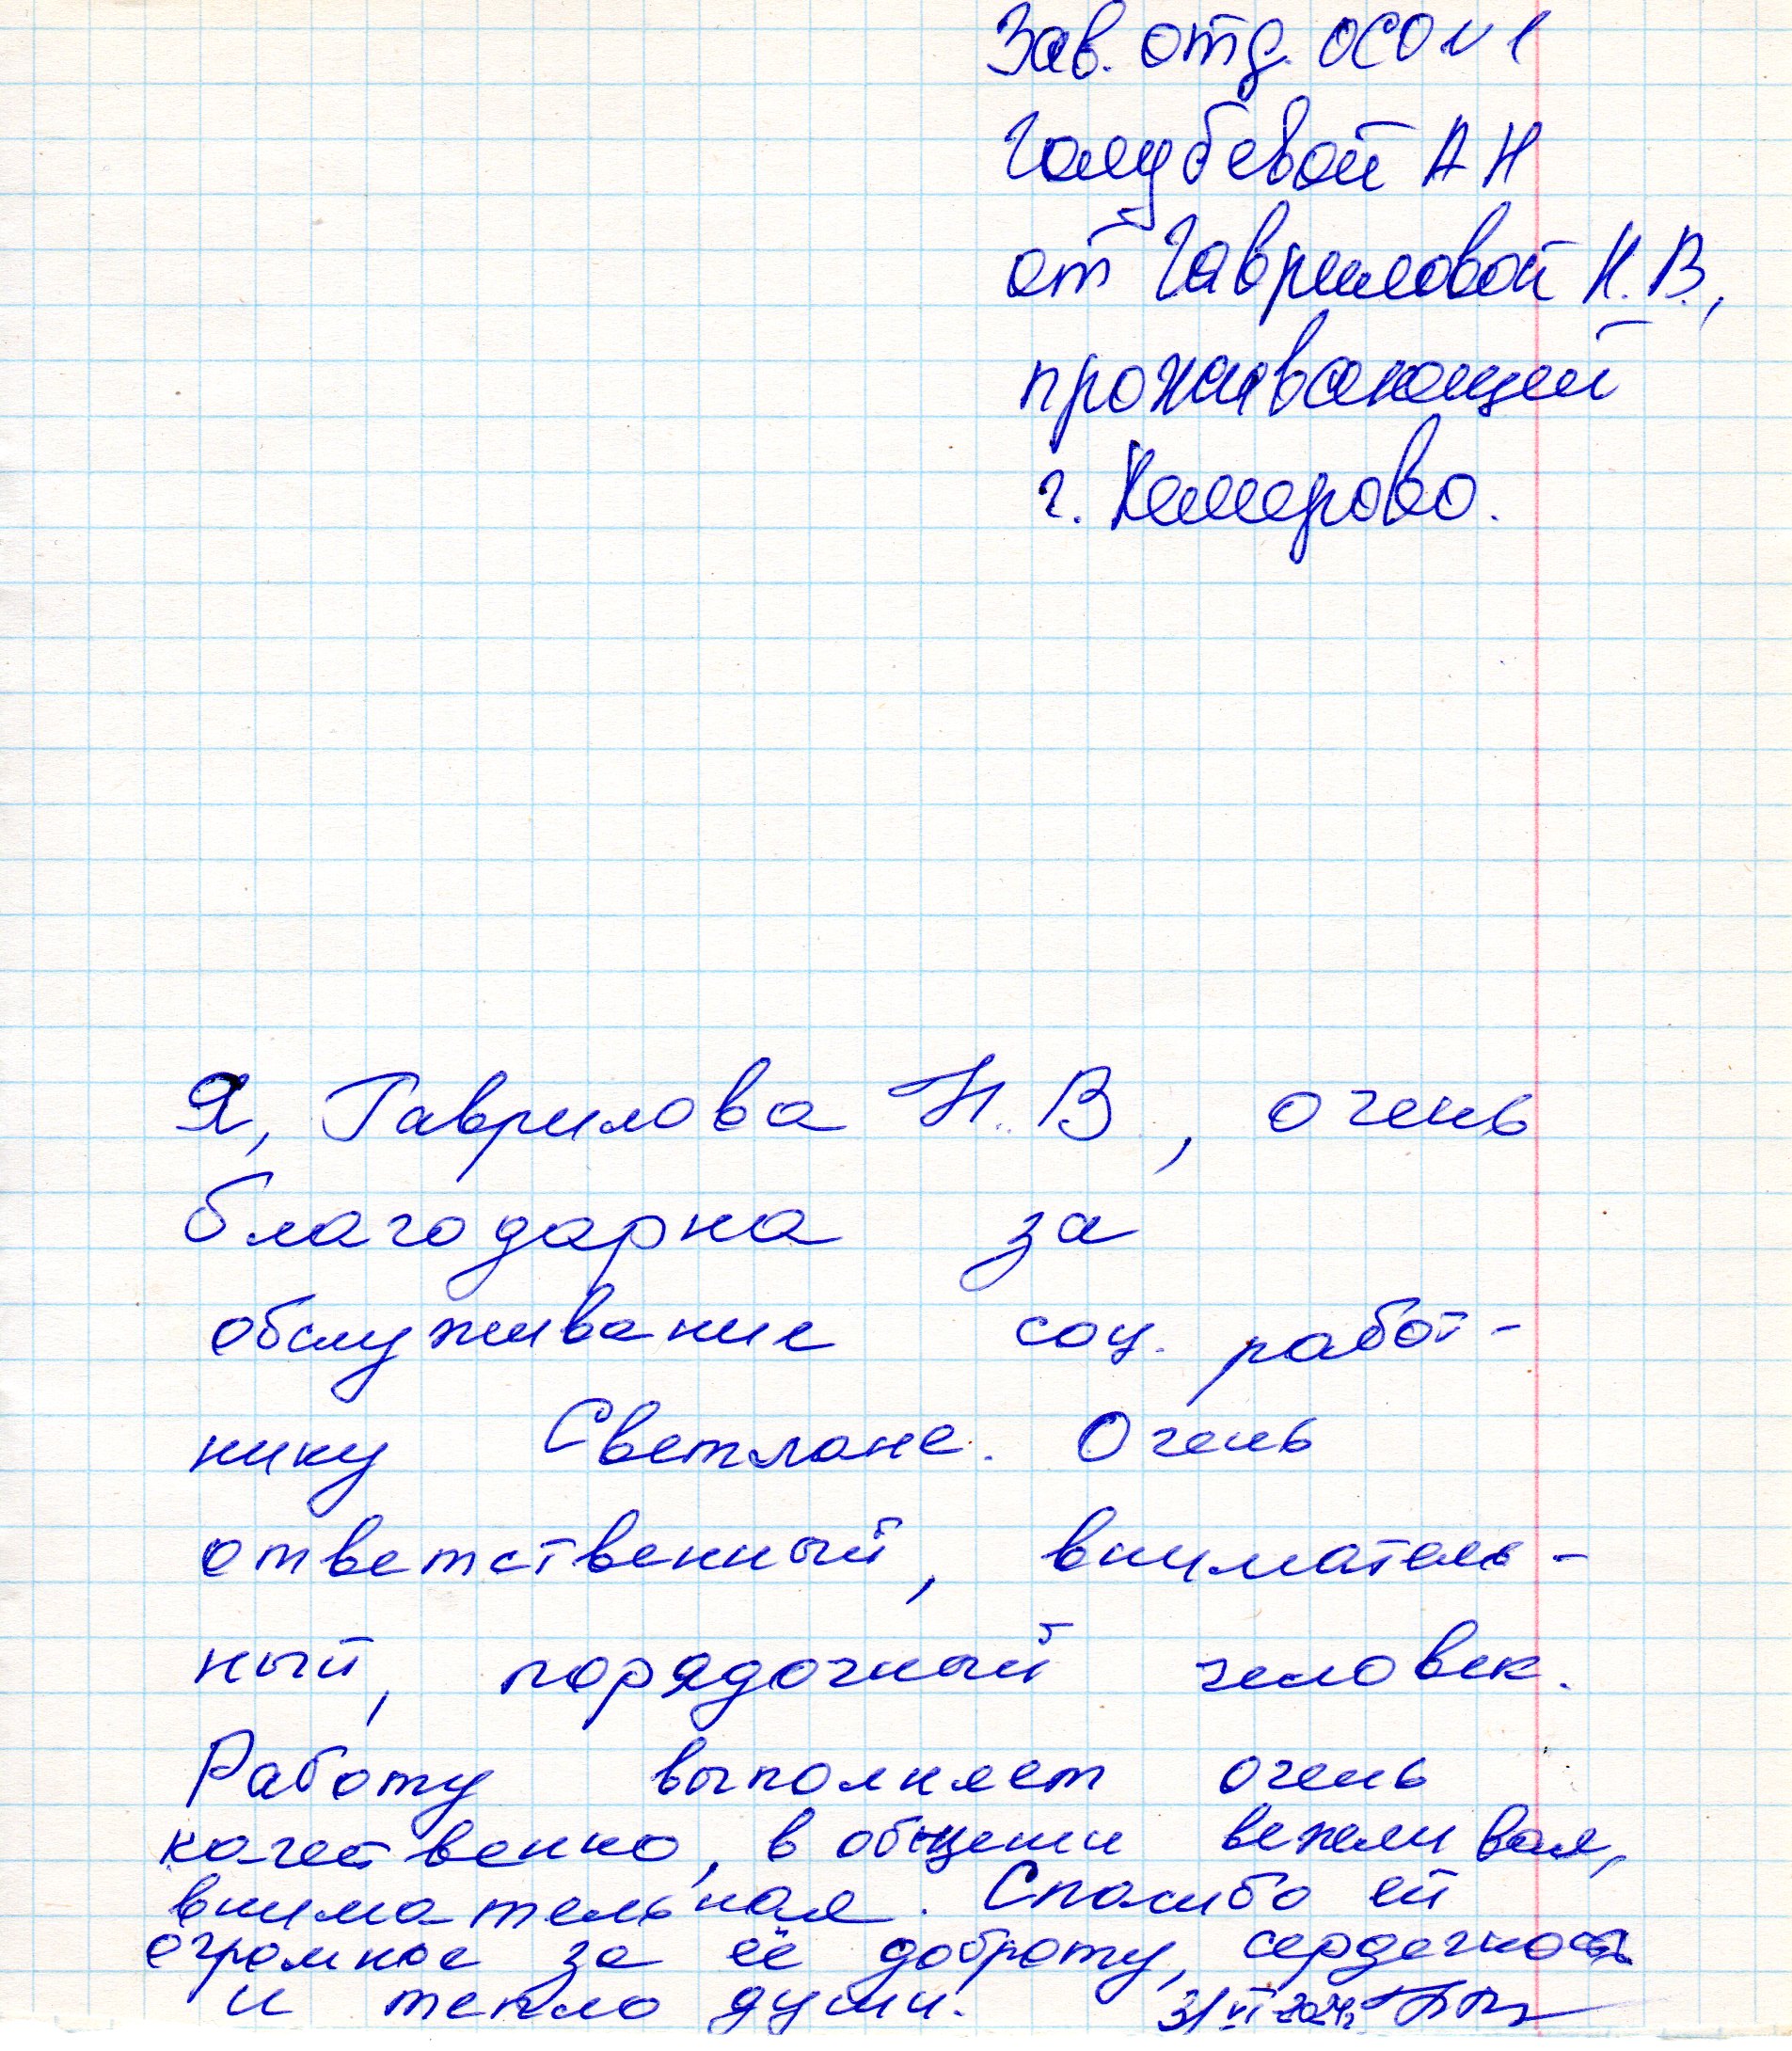 Зав. отд. ОСО №1
Голубевой А Н
от Гавриловой Н. В.,
проживающей
г. Кемерово.
Я, Гаврилова Н. В., очень
благодарна за
обслуживание соц. работ-
нику Светлане. Очень
ответственный, вниматель-
ный, порядочный человек.
Работу выполняет очень
качественно, в общении вежливая,
внимательная. Спасибо ей
огромное за её доброту, сердечность
и тепло души. 31 VI 2024г.